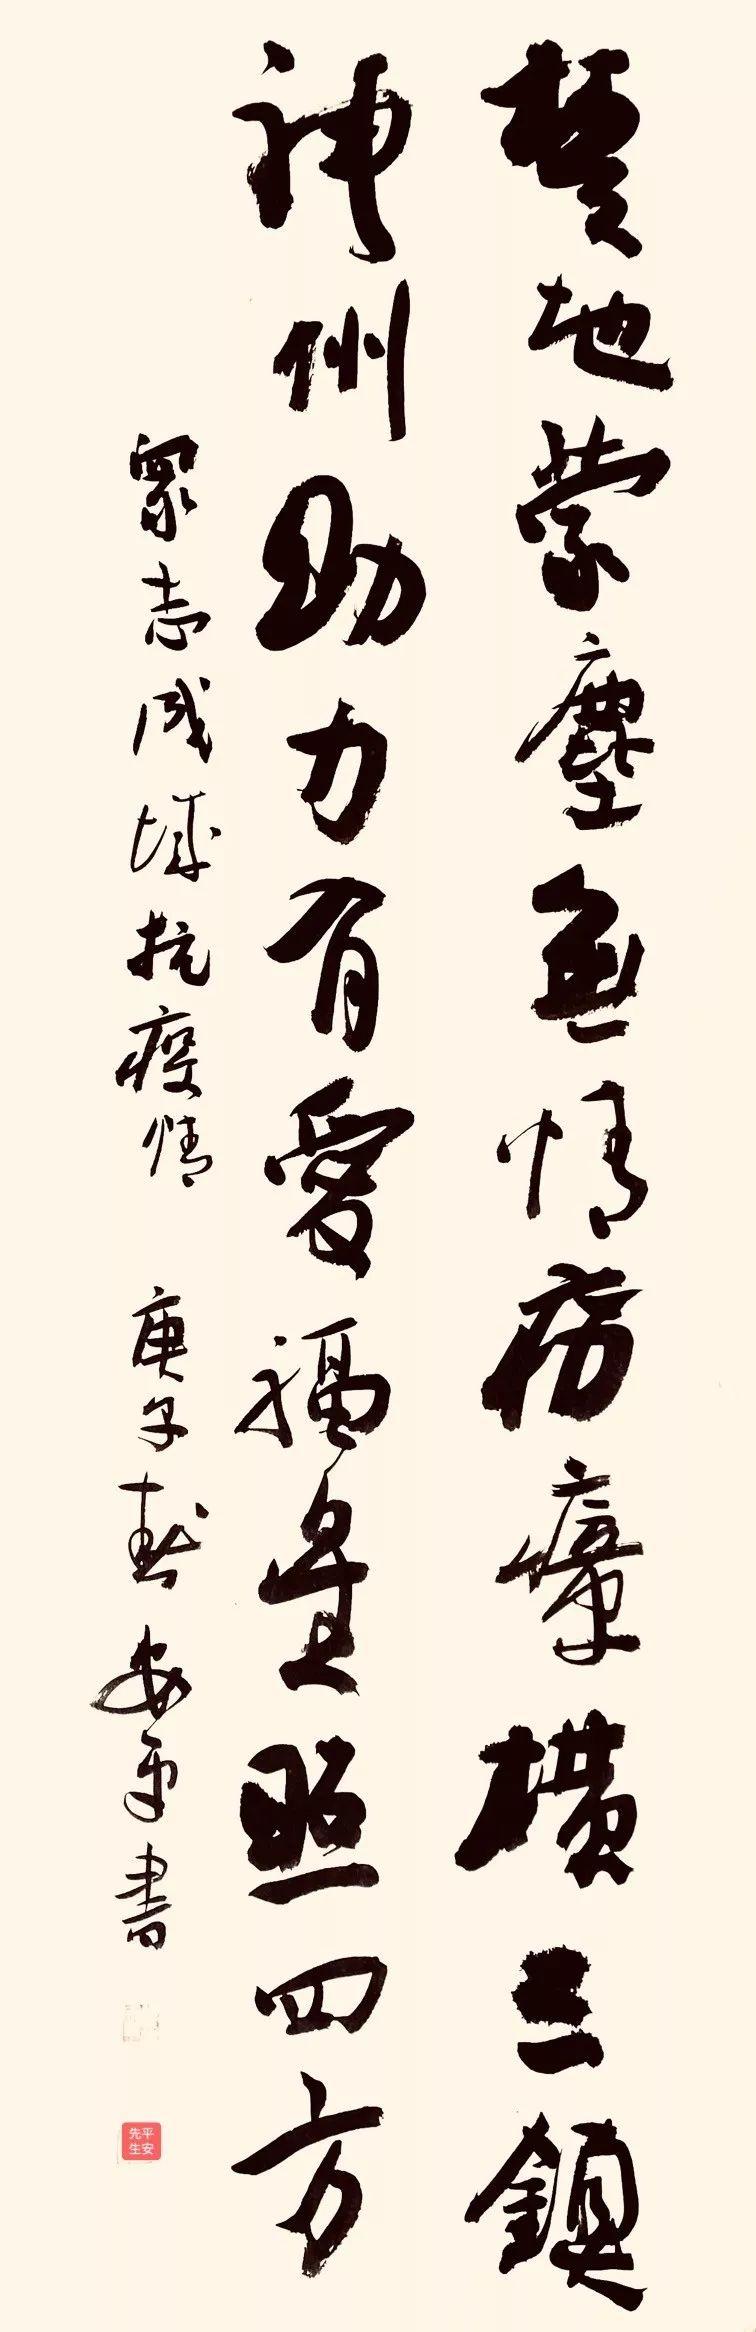 楚地蒙塵無情疠瘴橫三鎮
神州助力有愛福星照四方
眾志成城抗疫情 庚子春 安平書
平安先生